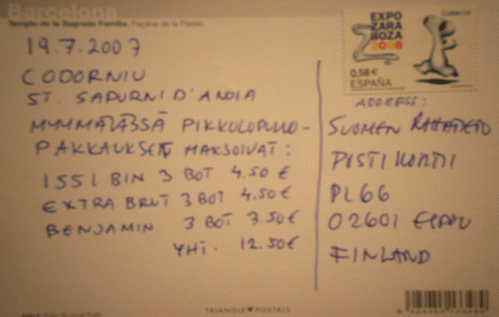 Barcelona
Temple de la Sagrada Família. Façana de la Passió.
19.7.2007
CODORNIU
ST. SADURNI D'ANOIA
MYYMÄLÄSSÄ PIKKOLOPULLO-
PAKKAUKSET MAKSOIVAT:
1551 BIN 3 BOT 4.50 €
EXTRA BRUT 3 BOT 4.50 €
BENJAMIN 3 BOT 3.50 €
YHT. 12.50 €
EXPO
ZARA
GOZA
2008
CORREOS
0,58 €
ESPAÑA
ADDRESS:
SUOMEN
POSTIKORTTI
PL 66
02601 ESPOO
FINLAND
TRIANGLE POSTALS